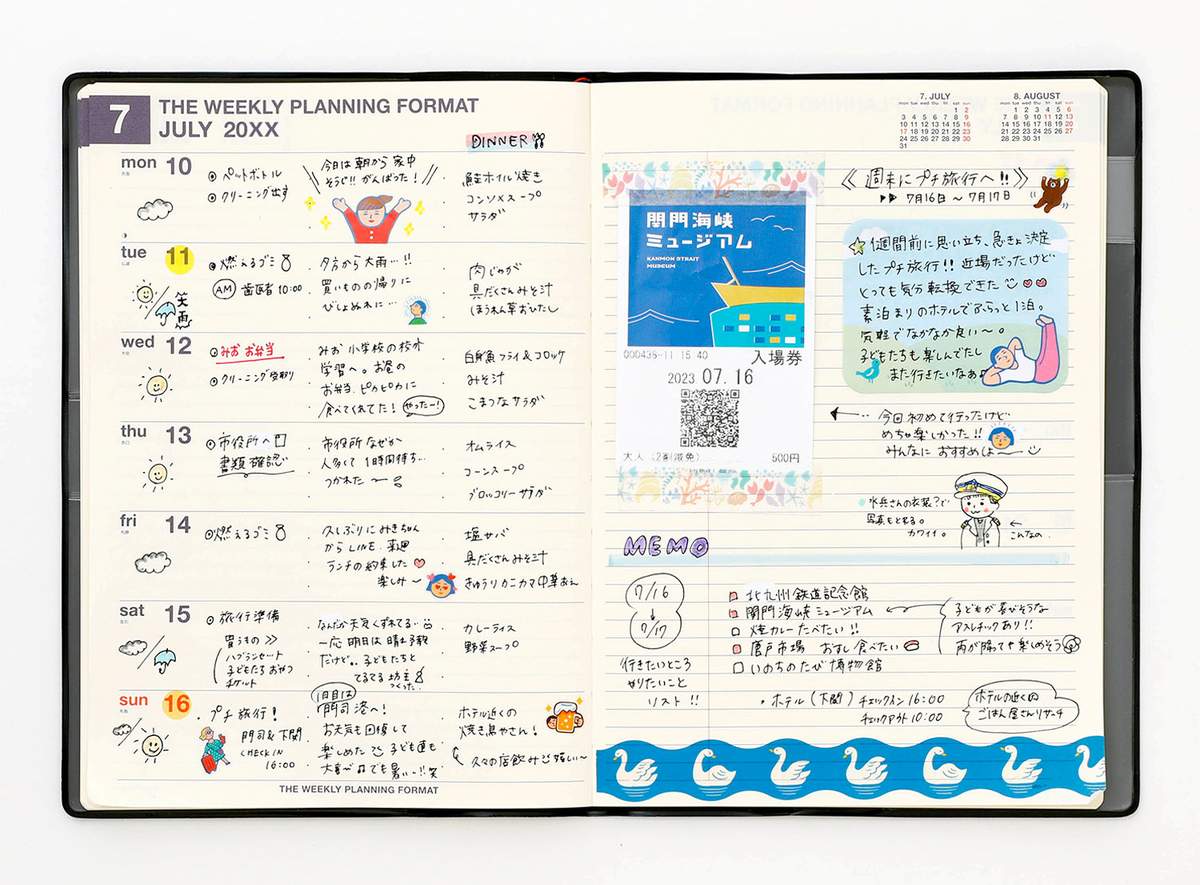 7
THE WEEKLY PLANNING FORMAT
JULY 20XX
DINNER
mon 10
ペットボトル
クリーニング出す
今日は朝から家中
そうじ!! がんばった!
鮭ホイル焼き
コンソメスープ
サラダ
tue 11
笑
燃えるゴミ
AM 歯医者 10:00
夕方から大雨…!!
買いものの帰りに
びしょぬれに…
肉じゃが
具だくさんみそ汁
ほうれん草おひたし
wed 12
みお お弁当
クリーニング受取り
みお 小学校の校外
学習へ。お昼の
お弁当、ピカピカに
食べてくれてた! やったー!
白身魚フライ&コロッケ
みそ汁
こまつなサラダ
thu 13
市役所へ
書類確認
市役所なぜか
人多くて1時間待ち…
つかれた〜
オムライス
コーンスープ
ブロッコリーサラダ
fri 14
燃えるゴミ
久しぶりにみきちゃん
からLINE。来週
ランチの約束した
楽しみ〜
塩サバ
具だくさんみそ汁
きゅうりカニカマ中華あえ
sat 15
旅行準備
買うもの >>
ハブラシセット
子どもたちおやつ
チケット
なんだか天気くずれてる…
一応明日は晴れ予報
だけど。子どもたちと
てるてる坊主
つくった。
カレーライス
野菜スープ
sun 16
プチ旅行!
門司&下関
CHECK IN
16:00
1日目は
門司港へ!
お天気も回復して
楽しめた 子ども達も
大喜び でも暑い…!!笑
ホテル近くの
焼き鳥やさん!
久々の店飲み 嬉しい〜
THE WEEKLY PLANNING FORMAT
7. JULY
mon tue wed thu fri sat sun
1 2
3 4 5 6 7 8 9
10 11 12 13 14 15 16
17 18 19 20 21 22 23
24 25 26 27 28 29 30
31
8. AUGUST
mon tue wed thu fri sat sun
1 2 3 4 5 6
7 8 9 10 11 12 13
14 15 16 17 18 19 20
21 22 23 24 25 26 27
28 29 30 31
関門海峡
ミュージアム
KANMON STRAIT
MUSEUM
000435-11 15 40
入場券
2023 07.16
大人 (2割減免) 500円
《週末にプチ旅行へ!!》
▶▶ 7月16日〜7月17日
1週間前に思い立ち、急きょ決定
したプチ旅行!! 近場だったけど
とっても気分転換できた
素泊まりのホテルでふらっと1泊。
気軽でなかなか良い〜。
子どもたちも楽しんでたし
また行きたいなぁ
← 今回初めて行ったけど
めちゃ楽しかった!!
みんなに おすすめしよ〜
水兵さんの衣装?で
写真もとれる。
カワイイ。
← こんなの
MEMO
7/16
↓
7/17
行きたいところ
やりたいこと
リスト!!
北九州鉄道記念館
関門海峡ミュージアム
焼カレーたべたい!!
唐戸市場 おすし食べたい
いのちのたび博物館
子どもが喜びそうな
アスレチックあり!!
雨が降っても楽しめそう
・ホテル(下関)チェックイン 16:00
チェックアウト 10:00
ホテルの近くの
ごはん屋さんリサーチ